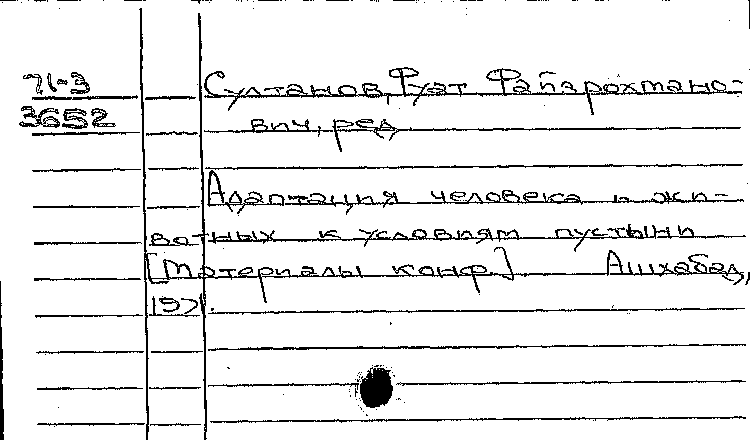 71-3 Султанов, Фуат Файзрахмано-
3652 вич, ред.
Адаптация человека и жи-
вотных к условиям пустыни
[Материалы конф.] Ашхабад,
1971.